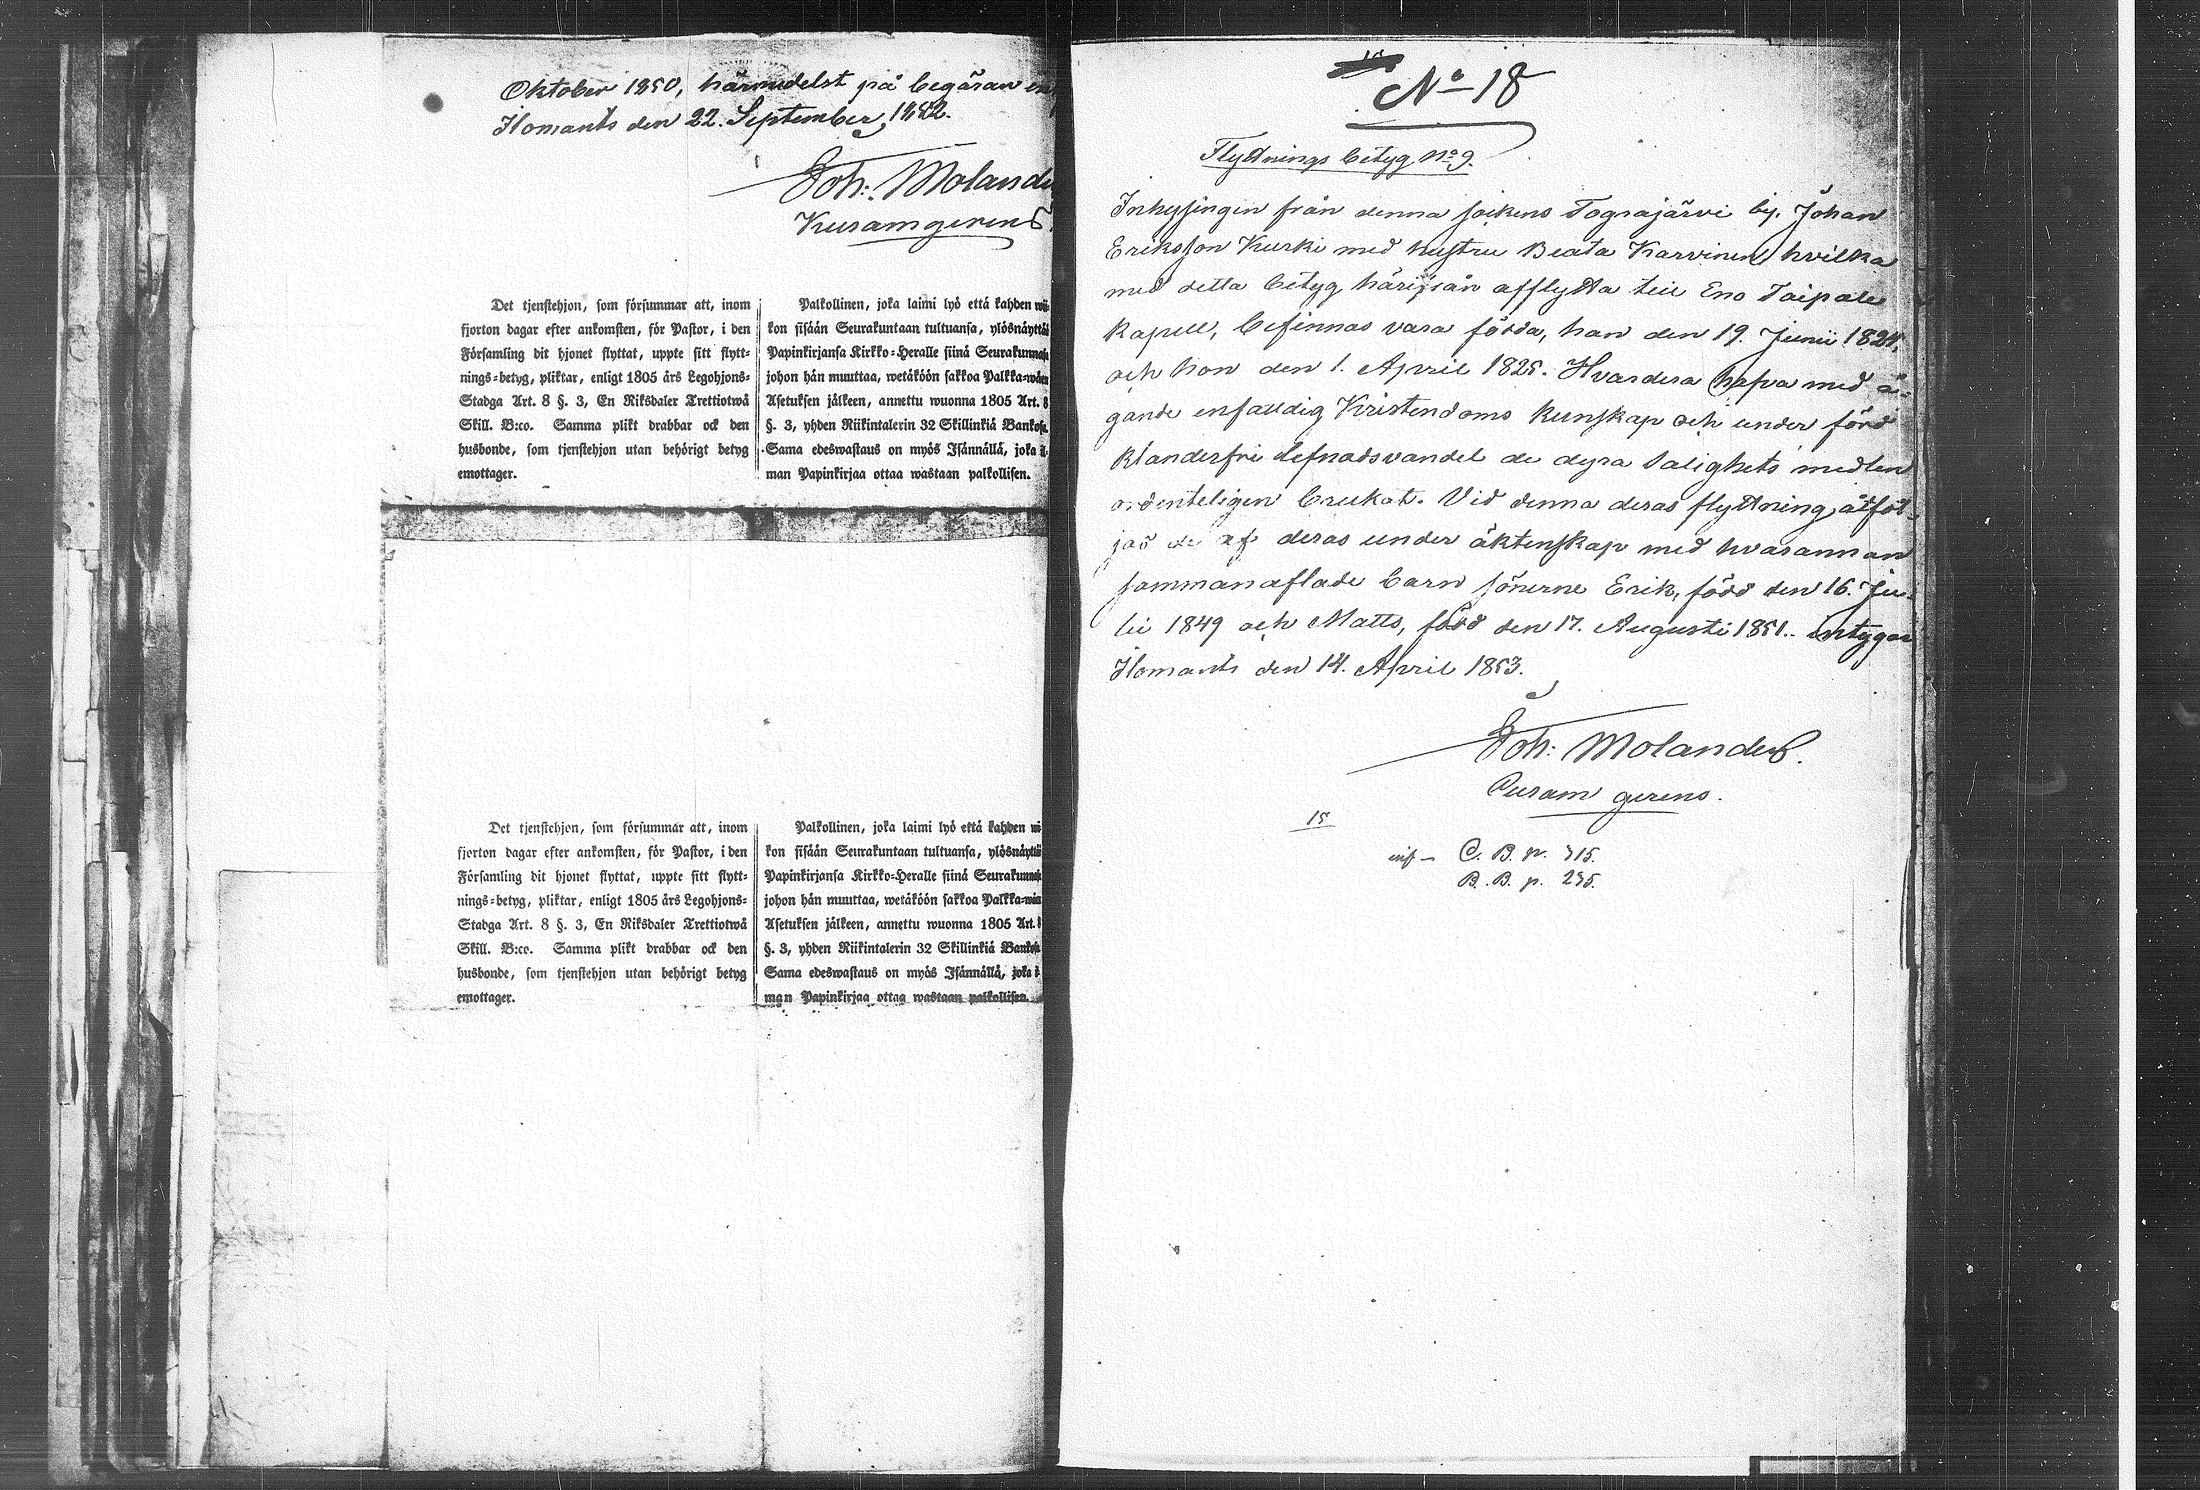 Oktober 1850, härmedelst på begäran
Ilomants den 22. September 1852.
Joh: Molander
Kuram gerens.
Det tjenstehjon, som försummar att, inom
fjorton dagar efter ankomsten, för Pastor, i den
Församling dit hjonet flyttat, uppte sitt flytt-
nings-betyg, pliktar, enligt 1805 års Legohjons-
Stadga Art. 8 §. 3, En Riksdaler Trettiotwå
Skill. B:co. Samma plikt drabbar ock den
husbonde, som tjenstehjon utan behörigt betyg
emottager.
Palkollinen, joka laimi lyö ettå kahden wii-
kon sisåån Seurakuntaan tultuansa, ylösnåyttåå
Papinkirjansa Kirkko-Heralle siinå Seurakunnasa
johon hån muuttaa, wetåköön sakkoa Palkka-wåen
Asetuksen jålkeen, annettu wuonna 1805 Art. 8
§. 3, yhden Riikintalerin 32 Skillinkiå Bankosa.
Sama edeswastaus on myös Isånnållå, joka il-
man Papinkirjaa ottaa wastaan palkollisen.
Det tjenstehjon, som försummar att, inom
fjorton dagar efter ankomsten, för Pastor, i den
Församling dit hjonet flyttat, uppte sitt flytt-
nings-betyg, pliktar, enligt 1805 års Legohjons-
Stadga Art. 8 §. 3, En Riksdaler Trettiotwå
Skill. B:co. Samma plikt drabbar ock den
husbonde, som tjenstehjon utan behörigt betyg
emottager.
Palkollinen, joka laimi lyö ettå kahden wi-
kon sisåån Seurakuntaan tultuansa, ylösnåyttå
Papinkirjansa Kirkko-Heralle siinå Seurakunnasa
johon hån muuttaa, wetåköön sakkoa Palkka-wåen
Asetuksen jålkeen, annettu wuonna 1805 Art. 8
§. 3, yhden Riikintalerin 32 Skillinkiå Bankosa
Sama edeswastaus on myös Isånnållå, joka i
man Papinkirjaa ottaa wastaan palkollisen.
No 18
Flyttnings betyg No 9.
Inhysingen från denna sokens Tograjärvi by, Johan
Eriksson Kurki med hustru Beata Karvinen, hvilka
med detta betyg härifrån afflytta till Eno Taipale
kapell, befinnas vara födda, han den 19. Junii 1824,
och hon den 1. April 1825. Hvardera hafva med ä-
gande enfaldig Kristendoms kunskap och under förd
klanderfri lefnadsvandel de dyra salighets medlen
ordenteligen brukat. Vid denna deras flyttning åtföl-
jas de af deras under äktenskap med hvarannan
sammanaflade barn sönerne Erik, född den 16. Ju-
lii 1849 och Matts, född den 17. Augusti 1851. intygar
Ilomants den 14. April 1853.
Joh: Molander.
Curam gerens.
15
inf - C. B. p. 315.
B. B. p. 235.